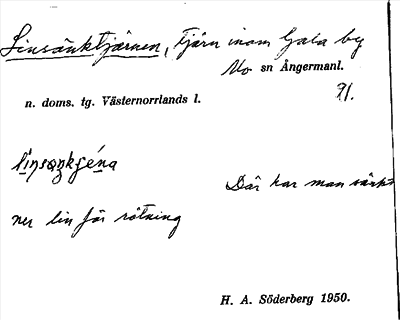 Linsänktjärnen, tjärn inom Gala by
Mo sn Ångermanl.
n. doms. tg. Västernorrlands l. 91.
Där har man sänkt
ner lin för rötning
H. A. Söderberg 1950.